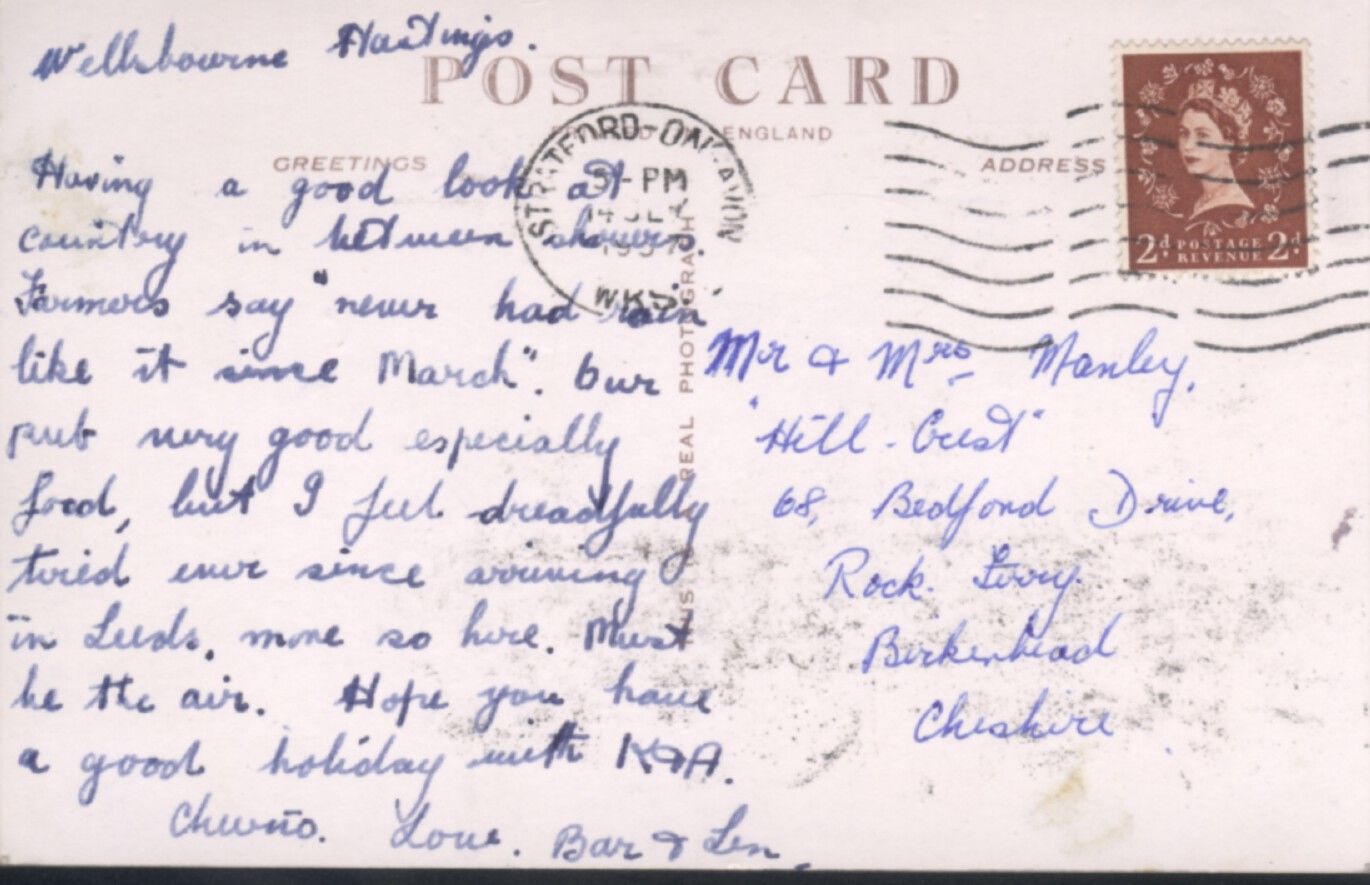 Wellsbourne Hastings.
POST CARD
ENGLAND
GREETINGS
ADDRESS
STRATFORD-ON-AVON
5-PM
14
195
WKS.
2d POSTAGE 2d
REVENUE
Having a good look at
country in between showers.
Farmers say "never had rain
like it since March". Our
pub very good especially
food, but I feel dreadfully
tired ever since arriving
in Leeds, more so here. Must
be the air. Hope you have
a good holiday with K & A.
Cheerio. Love. Bar & Len
REAL PHOTOGRAPH
Mr & Mrs Manley,
"Hill-Crest"
68, Bedford Drive,
Rock. Ferry.
Birkenhead
Cheshire